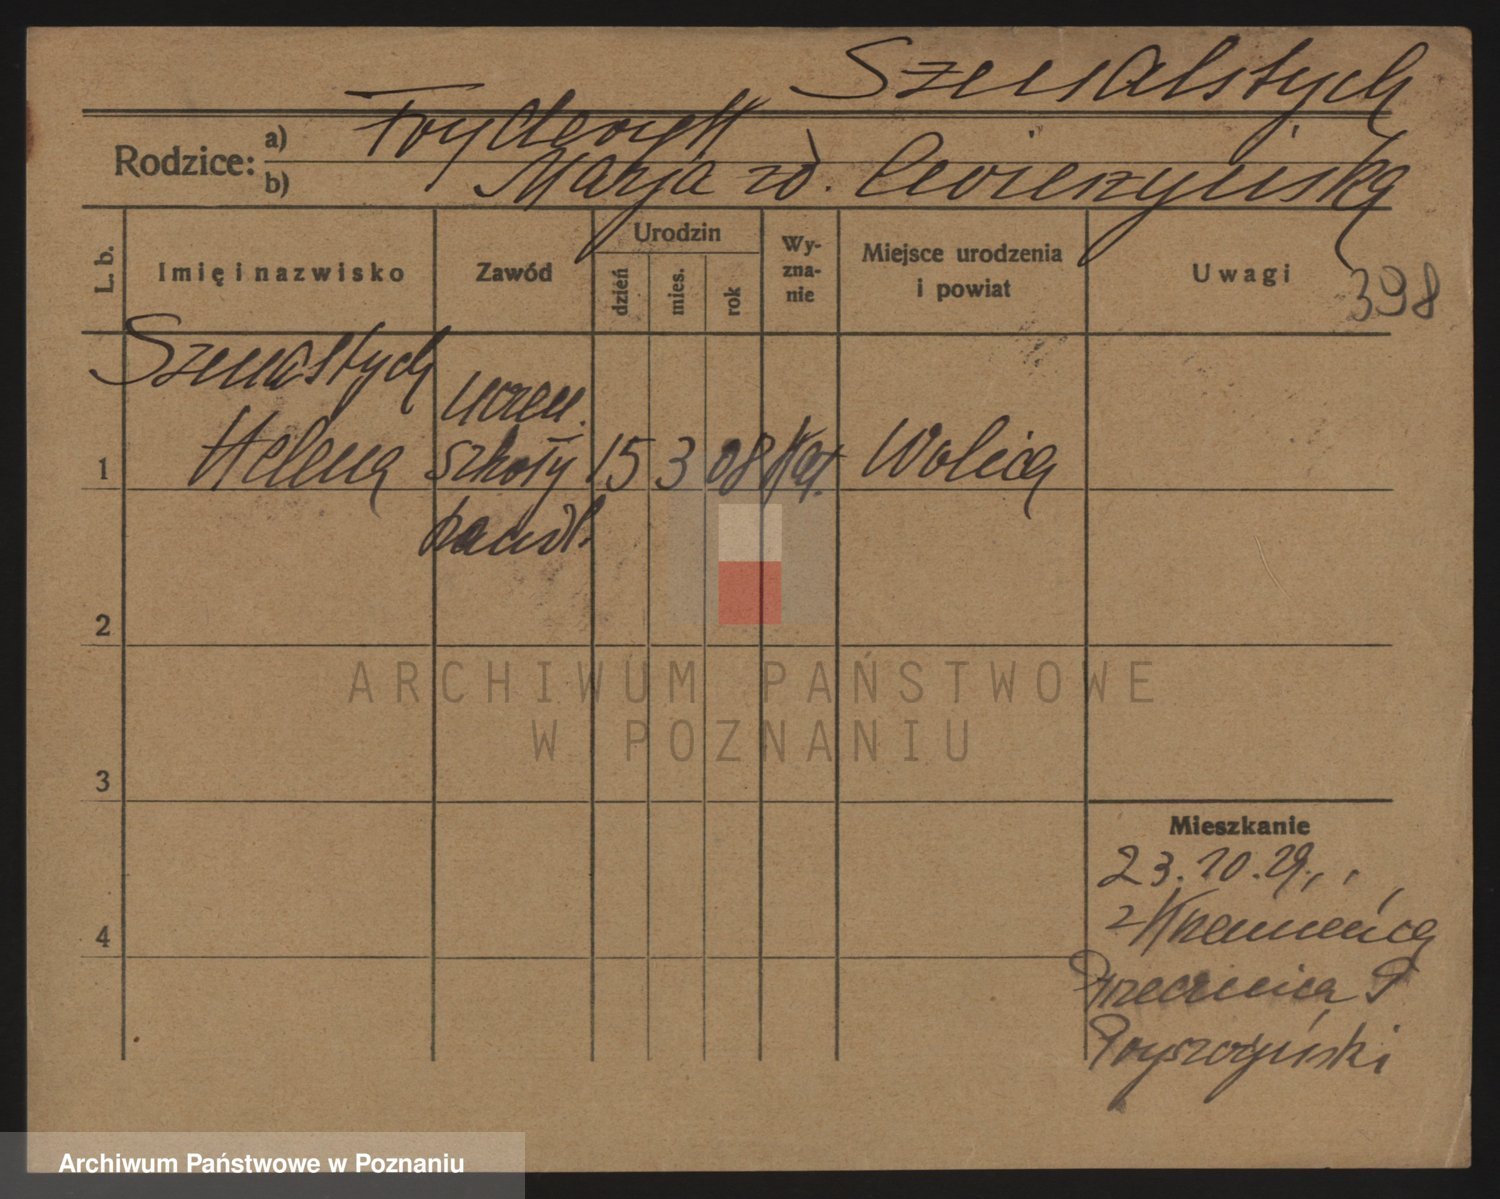 Szenalstych
Rodzice: a) Fryderyk
b) Marja zd.
L. b.
Imię i nazwisko
Zawód
Urodzin
dzień
mies.
rok
Wy-
zna-
nie
Miejsce urodzenia
i powiat
Uwagi
398
Szenalstych
uczen.
1 Helena szkoły 15 3 08 kat. Wolica
handl.
2
3
4
Mieszkanie
23.10.29.
z Krzemieńca
Przecznica 9
ARCHIWUM PAŃSTWOWE
W POZNANIU
Archiwum Państwowe w Poznaniu